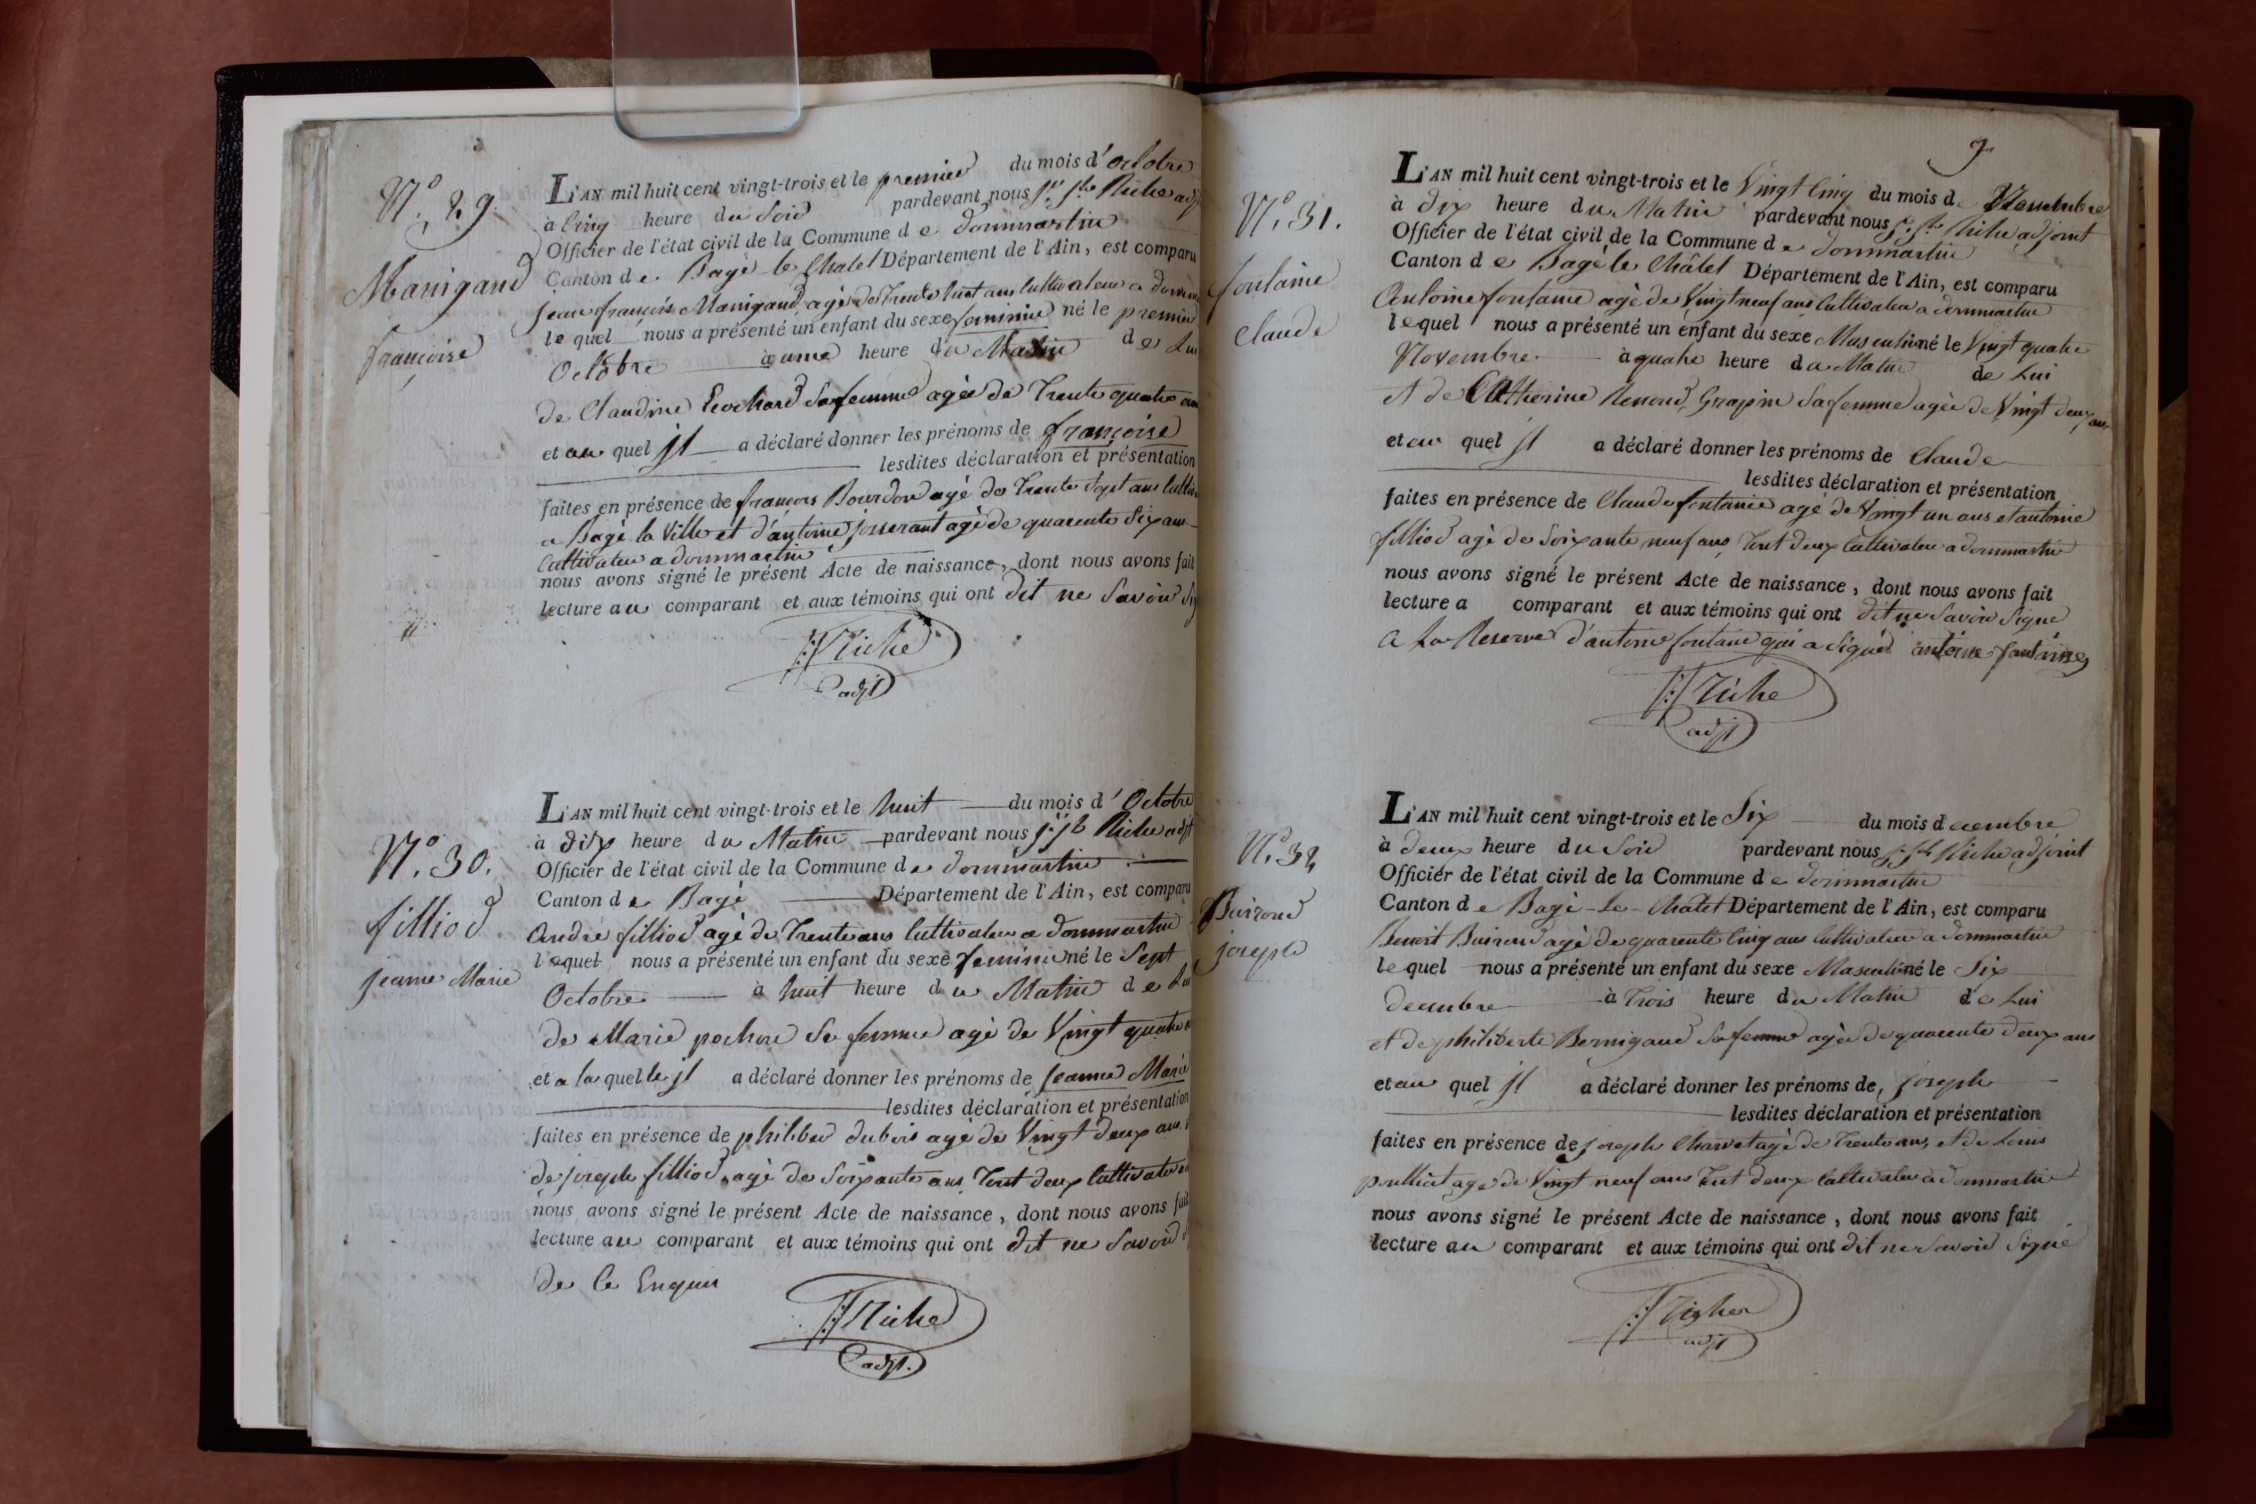 N.° 29.
Manigand
françoise
L'AN mil huit cent vingt-trois et le premier du mois d'octobre
à Cinq heure du Soir pardevant nous j.n j.h Riche adj
Officier de l'état civil de la Commune de dommartin
Canton de Bagé le Chatel Département de l'Ain, est comparu
jean françois Manigand agé de Trente huit ans Cultivateur a domm
lequel nous a présenté un enfant du sexe feminin né le premier
Octobre à une heure du Matin de Lui
de Claudine Rochard Sa femme agée de Trente quatre ans
et au quel jl a déclaré donner les prénoms de françoise
lesdites déclaration et présentation
faites en présence de françois Bourdon agé de Trente Sept ans Cultiv
a Bagé la Ville et d'antoine josserant agé de quarente Six ans
Cultivateur a dommartin
nous avons signé le présent Acte de naissance, dont nous avons fait
lecture au comparant et aux témoins qui ont dit ne Savoir Sig
Riche
adjt
N.° 30.
filliod
jeanne Marie
L'AN mil huit cent vingt-trois et le huit du mois d'Octobre
à dix heure du Matin pardevant nous j.n j.h Riche adjt
Officier de l'état civil de la Commune de dommartin
Canton de Bagé Département de l'Ain, est comparu
André filliod agé de Trente ans Cultivateur a dommartin
lequel nous a présenté un enfant du sexe feminin né le Sept
Octobre à huit heure du Matin de Lui
de Marie pochon Sa femme agé de Vingt quatre a
et a la quelle jl a déclaré donner les prénoms de jeanne Marie
lesdites déclaration et présentation
faites en présence de philiber dubois agé de Vingt deux ans
de joseph filliod agé de Soixante ans Tout deux Cultivateur
nous avons signé le présent Acte de naissance, dont nous avons fait
lecture au comparant et aux témoins qui ont dit ne Savoir
de le Enquis
Riche
adjt.
9
N.° 31.
fontaine
Claude
L'AN mil huit cent vingt-trois et le Vingt Cinq du mois de Novembre
à dix heure du Matin pardevant nous j.n j.h Riche adjoint
Officier de l'état civil de la Commune de dommartin
Canton de Bagé le Châtel Département de l'Ain, est comparu
Antoine fontaine agé de Vingt neuf ans Cultivateur a dommartin
lequel nous a présenté un enfant du sexe Masculin né le Vingt quatre
Novembre à quatre heure du Matin de Lui
et de Catherine Renoud Grapin Sa femme agée de Vingt deux ans
et au quel jl a déclaré donner les prénoms de Claude
lesdites déclaration et présentation
faites en présence de Claude fontaine agé de Vingt un ans et antoine
filliod agé de Soixante neuf ans Tout deux Cultivateur a dommartin
nous avons signé le présent Acte de naissance, dont nous avons fait
lecture a comparant et aux témoins qui ont dit ne Savoir Signe
A La Reserve d'antoine fontaine qui a Signé antoine fontaine
Riche
adjt
N.° 32
Buiron
joseph
L'AN mil huit cent vingt-trois et le Six du mois decembre
à deux heure du Soir pardevant nous j.n j.h Riche adjoint
Officier de l'état civil de la Commune de dommartin
Canton de Bagé-le-Châtel Département de l'Ain, est comparu
Benoit Buiron agé de quarente Cinq ans Cultivateur a dommartin
lequel nous a présenté un enfant du sexe Masculin né le Six
decembre à Trois heure du Matin de Lui
et de philiberte Bernigaud Sa femme agée de quarente deux ans
et au quel jl a déclaré donner les prénoms de joseph
lesdites déclaration et présentation
faites en présence de joseph Charvet agé de Trente ans, et de Louis
pulliat age de Vingt neuf ans Tout deux Cultivateur a dommartin
nous avons signé le présent Acte de naissance, dont nous avons fait
lecture au comparant et aux témoins qui ont dit ne Savoir Signé
Riche
adjt